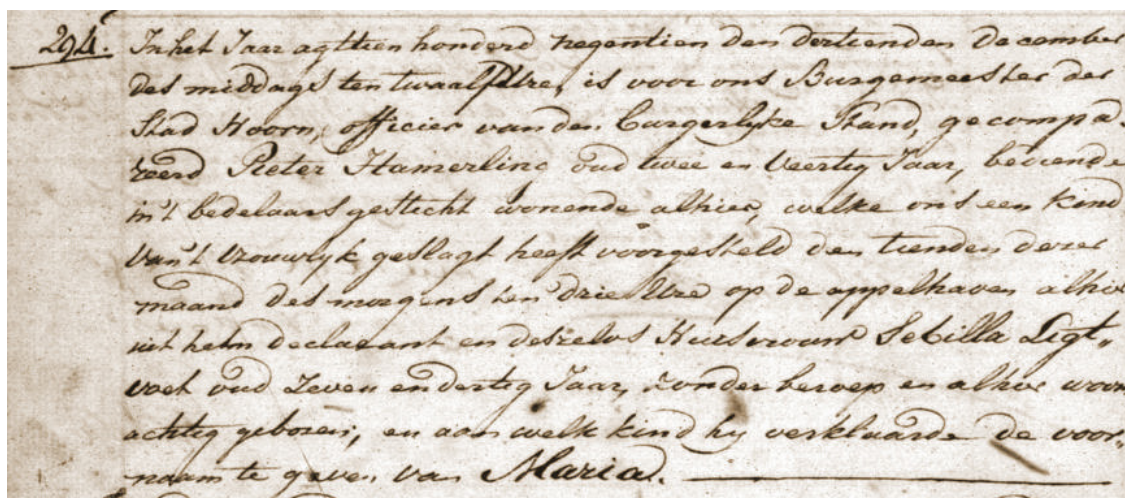 294. In het Jaar agttien honderd negentien den dertienden December
des middags ten twaalf Ure, is voor ons Burgemeester der
Stad Hoorn, officier van den burgerlyke Stand, gecompa-
reerd Pieter Hamerling oud twee en Veertig Jaar, bediende
in't bedelaars gesticht wonende alhier, welke ons een Kind
van't vrouwlyk geslagt heeft voorgesteld den tienden dezer
maand des morgens ten drie Ure op de appelhaven alhier
uit hem declarant en deszelvs Huisvrouw Sebilla Ligt„
voet oud Zeven en dertig Jaar, zonder beroep en alhier woon
achtig geboren, en aan welk kind hy verklaarde de voor„
naam te geven van Maria.